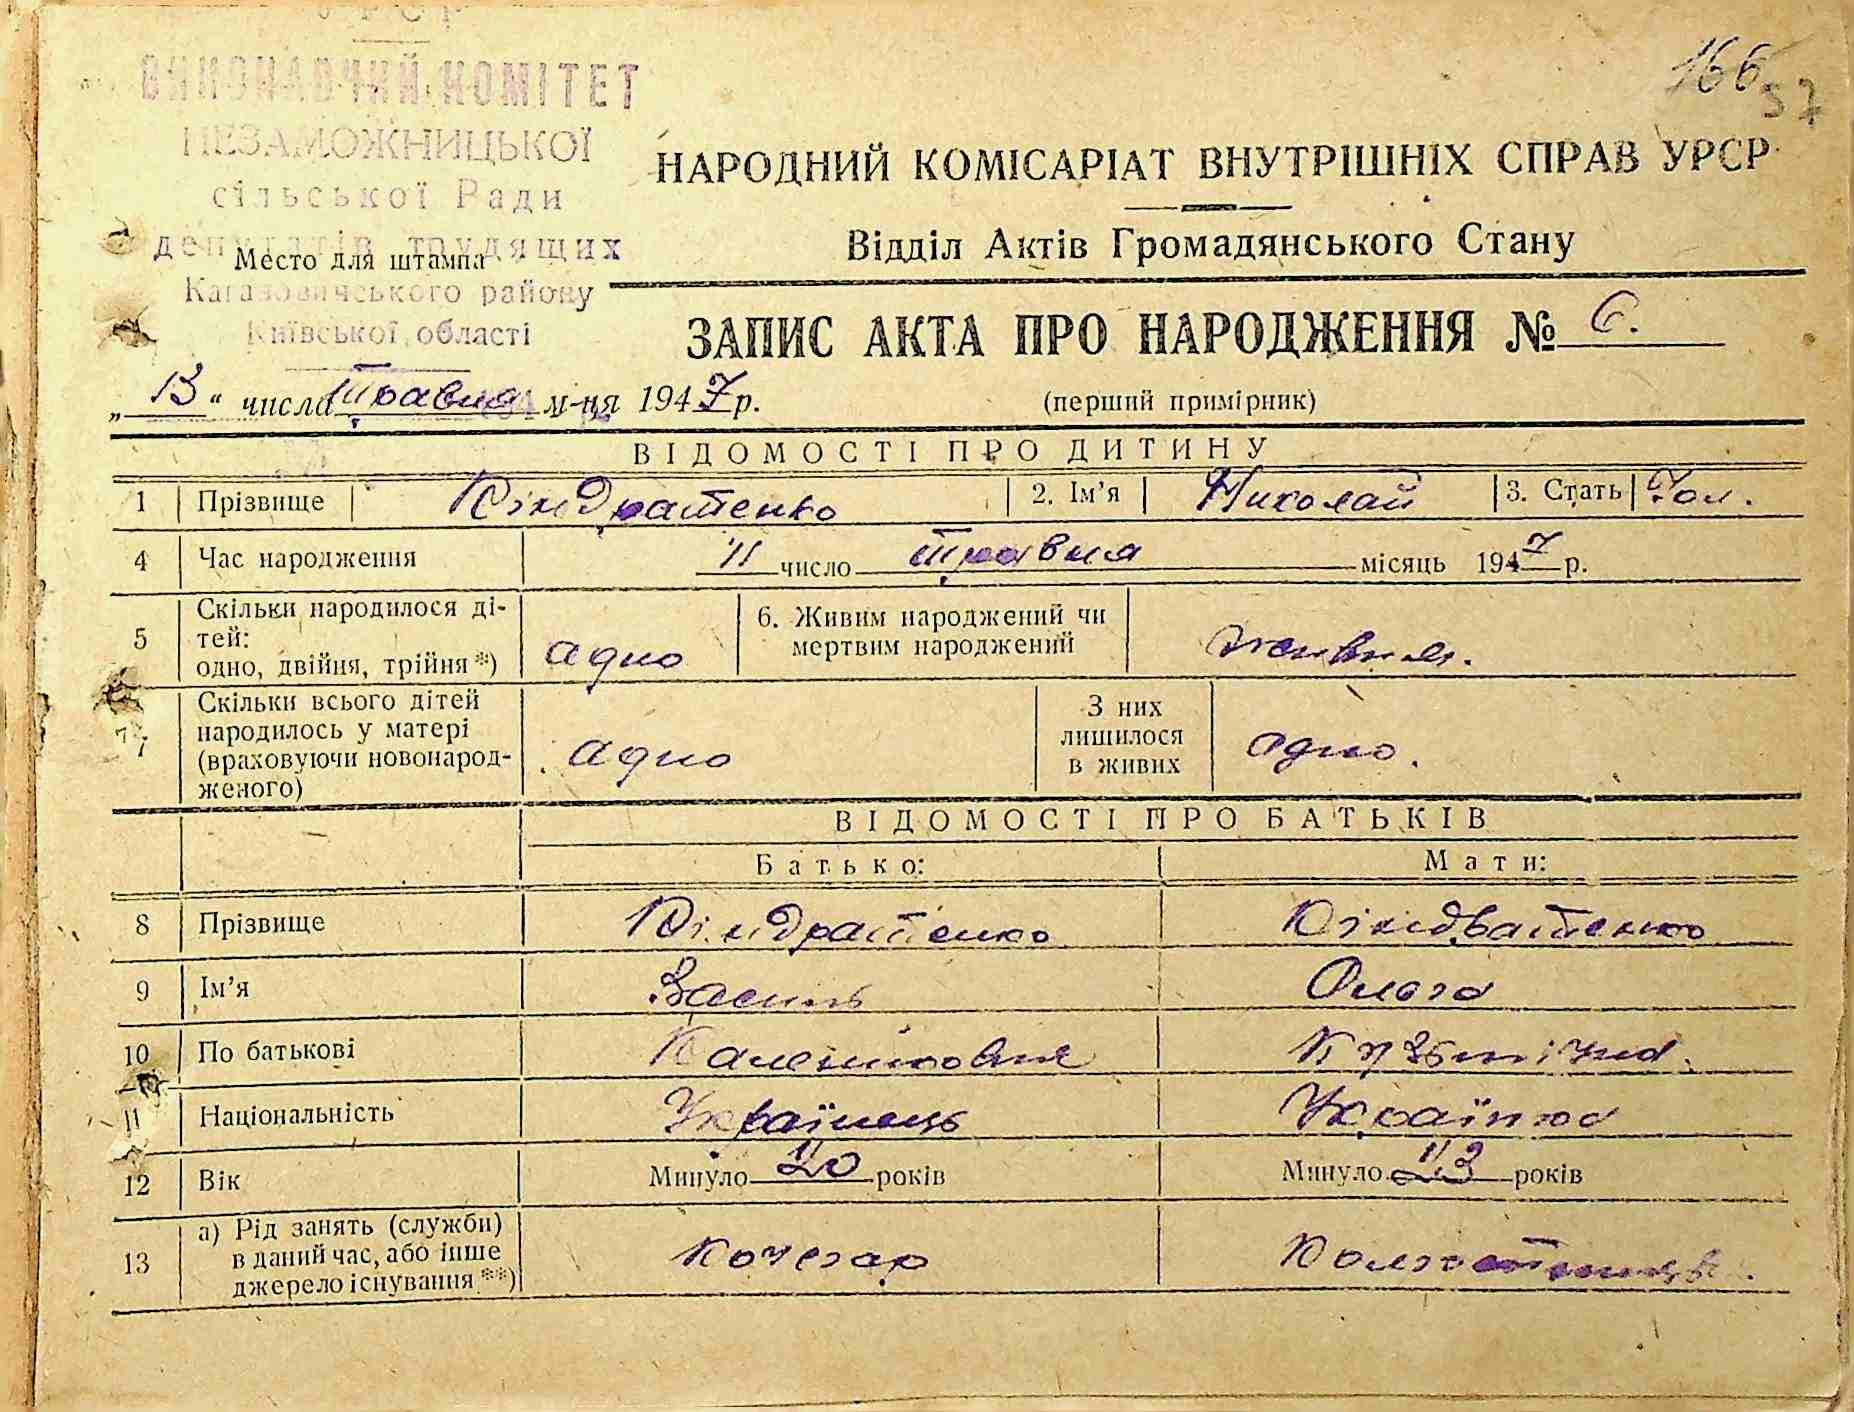 УРСР
ВИКОНАВЧИЙ КОМІТЕТ
НЕЗАМОЖНИЦЬКОЇ
сільської Ради
депутатів трудящих
Место для штампа
Кагановичського району
Київської області
166
57
НАРОДНИЙ КОМІСАРІАТ ВНУТРІШНІХ СПРАВ УРСР
Відділ Актів Громадянського Стану
ЗАПИС АКТА ПРО НАРОДЖЕННЯ № 6.
„13“ числа травня м-ця 1947 р.
(перший примірник)
ВІДОМОСТІ ПРО ДИТИНУ
1 Прізвище Кіндратенко 2. Ім'я Николай 3. Стать Чол.
4 Час народження 11 число травня місяць 1947 р.
5 Скільки народилося ді-
тей:
одно, двійня, трійня*) адно
6. Живим народжений чи
мертвим народжений живим.
7 Скільки всього дітей
народилось у матері
(враховуючи новонарод-
женого) адно
З них
лишилося
в живих одно.
ВІДОМОСТІ ПРО БАТЬКІВ
Батько: Мати:
8 Прізвище Кіндратенко Кіндратенко
9 Ім'я Василь Ольга
10 По батькові Кузьмінічна.
11 Національність Українець Українка
12 Вік Минуло 20 років Минуло 23 років
13 а) Рід занять (служби)
в даний час, або інше
джерело існування**) Кочегар Колгоспниця.